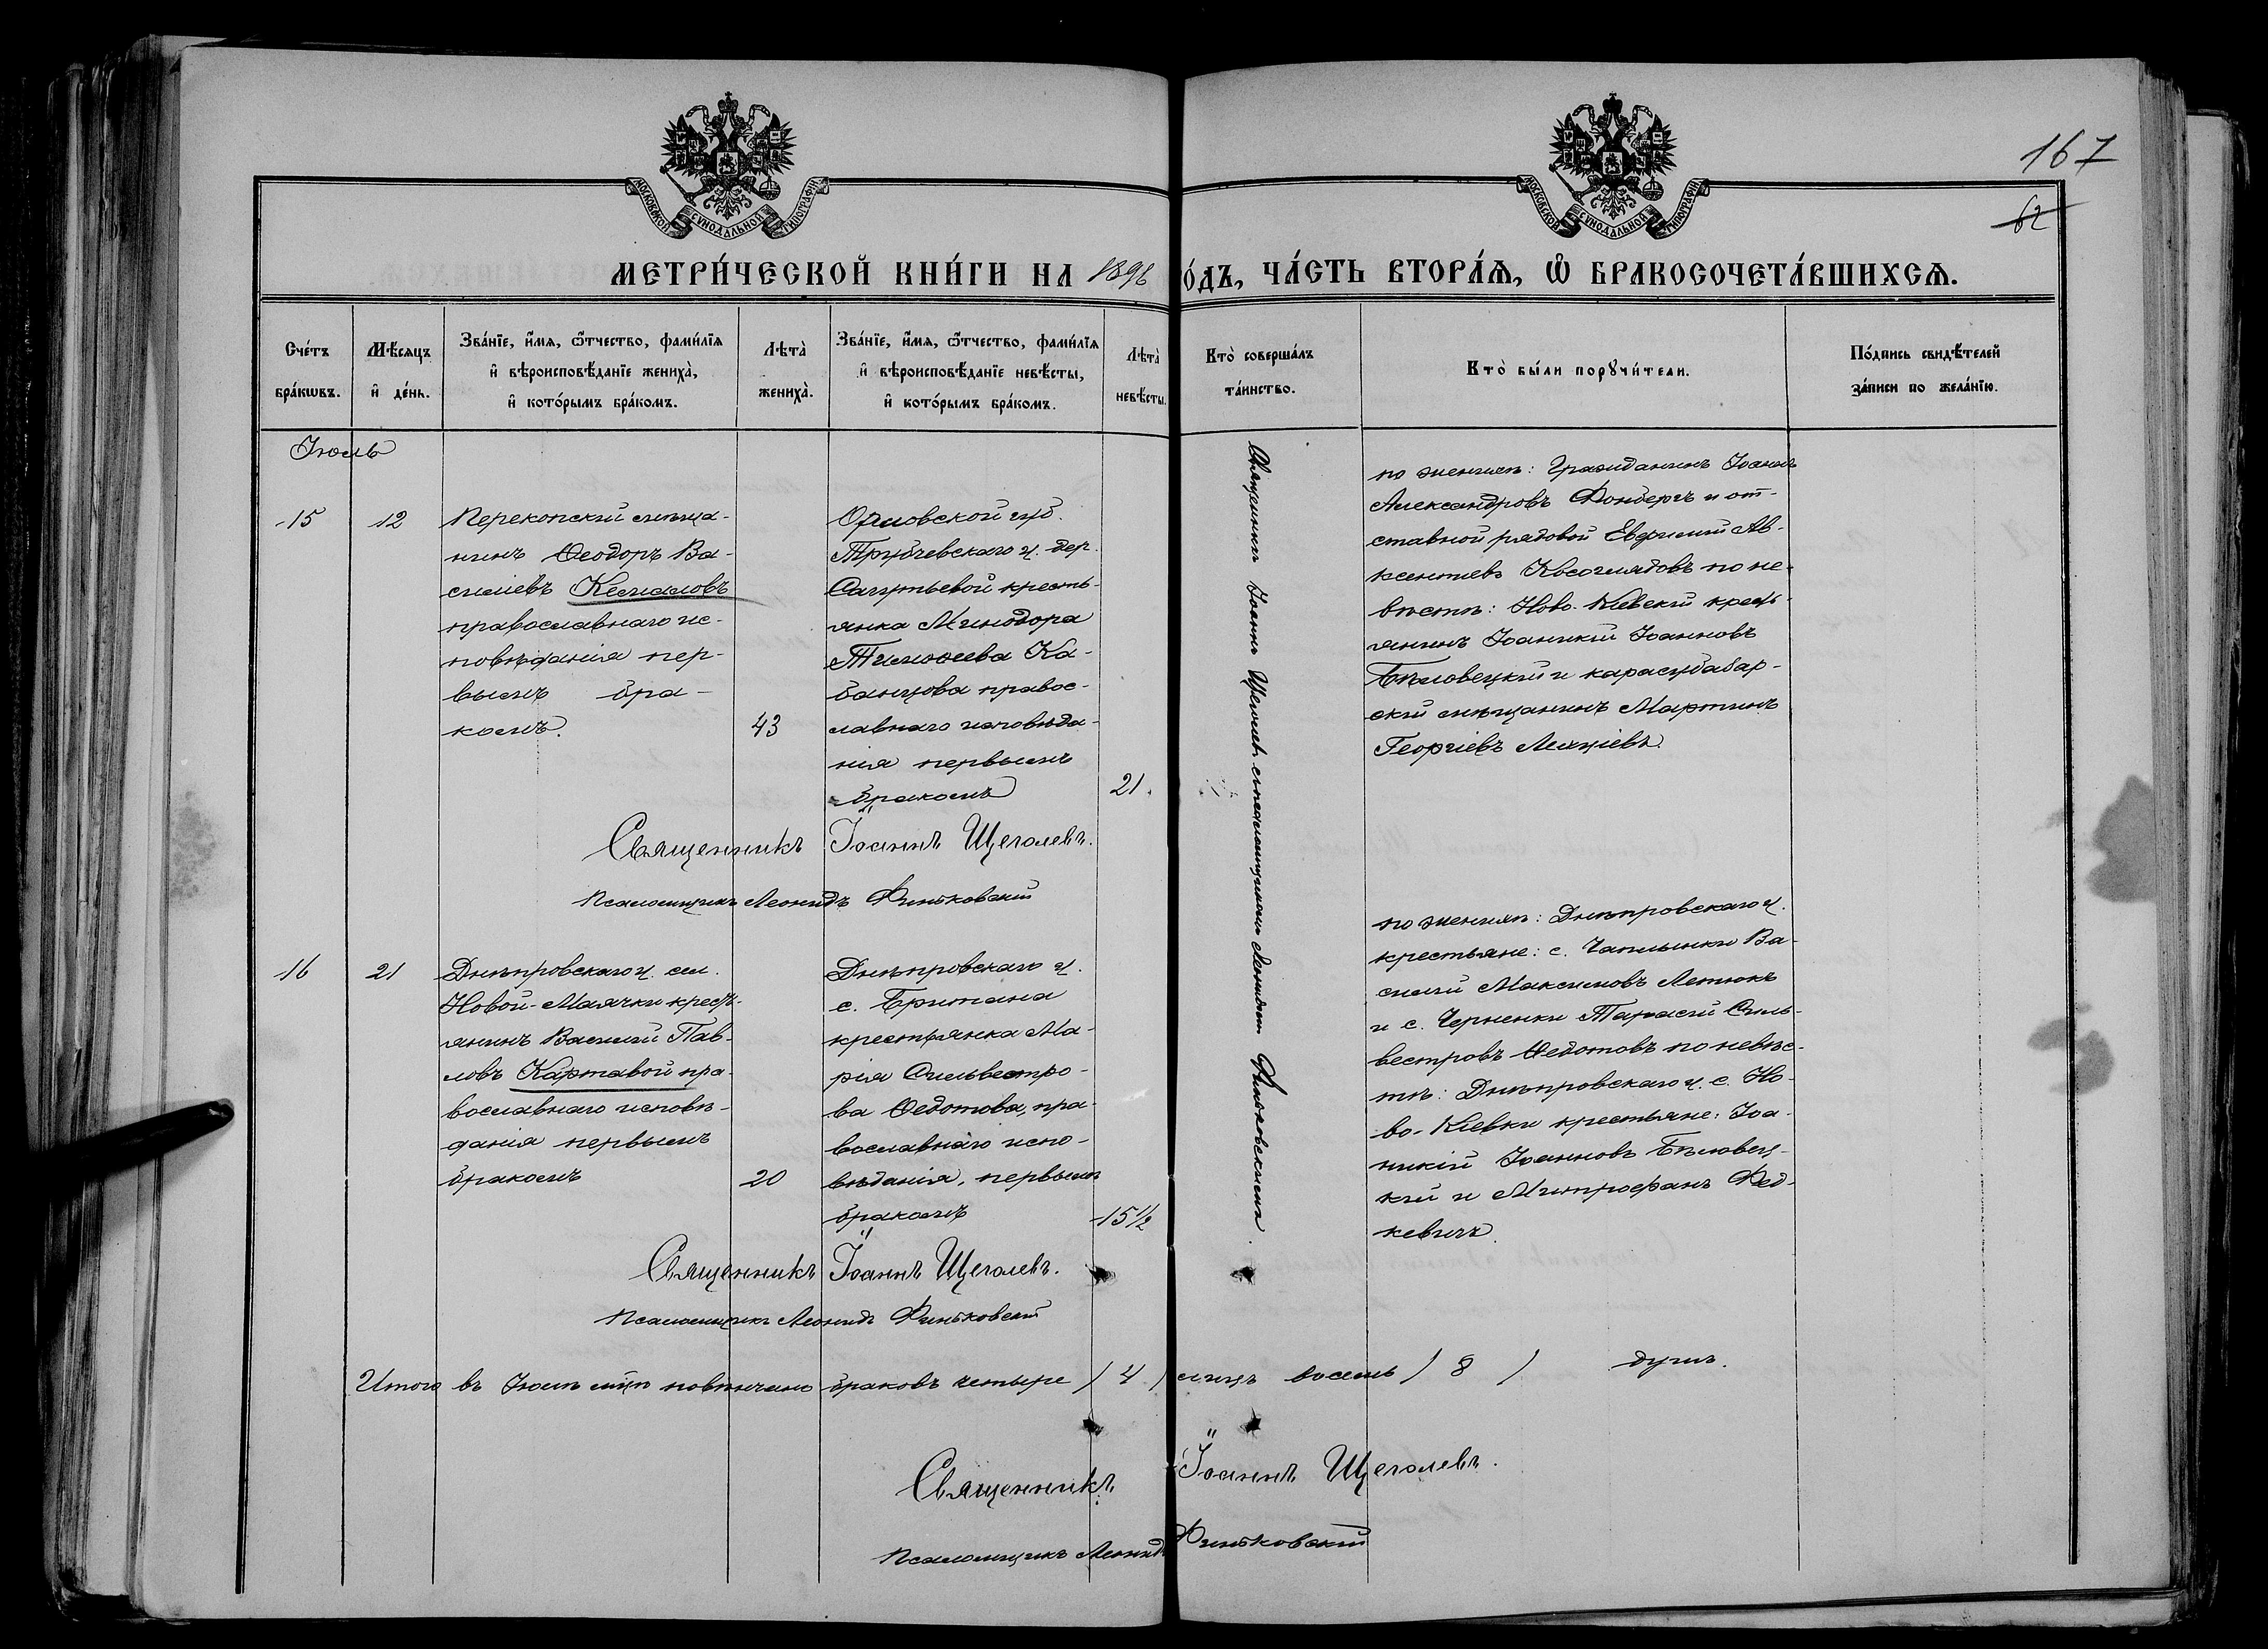 МОСКОВСКОЙ СѴНОДАЛЬНОЙ ТИПОГРАФІИ
МОСКОВСКОЙ СѴНОДАЛЬНОЙ ТИПОГРАФІИ
167
62
МЕТРИ́ЧЕСКОЙ КНИ́ГИ НА 1896
ÓДЪ, ЧА́СТЬ ВТОРА́Ѧ, Ѽ БРАКОСОЧЕТА́ВШИХСѦ.
Сче́тъ бра́кѡвъ.
Мѣ́сѧцъ и҆ де́нь.
Зва́нїе, и҆́мѧ, ѻ҆́тчество, фами́лїѧ
и҆ вѣроисповѣ́данїе жениха̀,
и҆ кото́рымъ бра́комъ.
Лѣта̀ жениха̀.
Зва́нїе, и҆́мѧ, ѻ҆́тчество, фами́лїѧ
и҆ вѣроисповѣ́данїе невѣ́сты,
и҆ кото́рымъ бра́комъ.
Лѣта̀ невѣ́сты.
Кто̀ соверша́лъ
та́инство.
Кто̀ бы́ли порꙋчи́тели.
По́дпись свидѣ́телей
за́писи по жела́нїю.
Іюль
15
12
Перекопскій мѣща-
нинъ Ѳеодоръ Ва-
силіевъ Кемаловъ
православнаго ис-
повѣданія пер-
вымъ бра-
комъ.
43
Орловской губ.
Трубчевскаго у. дер.
крестьянка
янка Минодора
Тимоѳеева Ка-
банцова правос-
лавнаго исповѣда-
нія первымъ
бракомъ
21.
Священникъ Іоаннъ Щеголевъ съ псаломщикомъ Леонидомъ Финьковскимъ.
по женихѣ: Гражданинъ Іоаннъ
Александровъ Фонбергъ и от-
ставной рядовой Евфимій Ав-
ксентіевъ Косоглядовъ по не-
вѣстѣ: Ново-Кіевскій крест-
янинъ Іоанникій Іоанновъ
Бѣловецкій и карасубазар-
скій мѣщанинъ Мартинъ
Георгіевъ
Священникъ Іоаннъ Щеголевъ.
Псаломщикъ Леонидъ Финьковскій
16
21
Днѣпровскаго у. сел.
Новой-Маячки крест-
янинъ Василій Пав-
ловъ Картавой пра-
вославнаго исповѣ-
данія первымъ
бракомъ
20
Днѣпровскаго у.
с. Британа
крестьянка Ма-
рія Сильвестро-
ва Ѳедотова, пра-
вославнаго испо-
вѣданія, первымъ
бракомъ
15½
по женихѣ: Днѣпровскаго у.
крестьяне: с. Чаплынки Ва-
силій Максимовъ Летюкъ
и с. Черненки Тарасій Силь-
вестровъ Ѳедотовъ по невѣс-
тѣ: Днѣпровскаго у. с. Но-
во-Кіевки крестьяне: Іоа-
никій Іоанновъ Бѣловец-
кій и Митрофанъ Фед-
кевичъ.
Священникъ Іоаннъ Щеголевъ.
Псаломщикъ Леонидъ Финьковскій
Итого въ Іюлѣ мцѣ повѣнчано браковъ четыре / 4 / лицъ восемь / 8 / душъ.
Священникъ Іоаннъ Щеголевъ.
Псаломщикъ Леонидъ Финьковскій